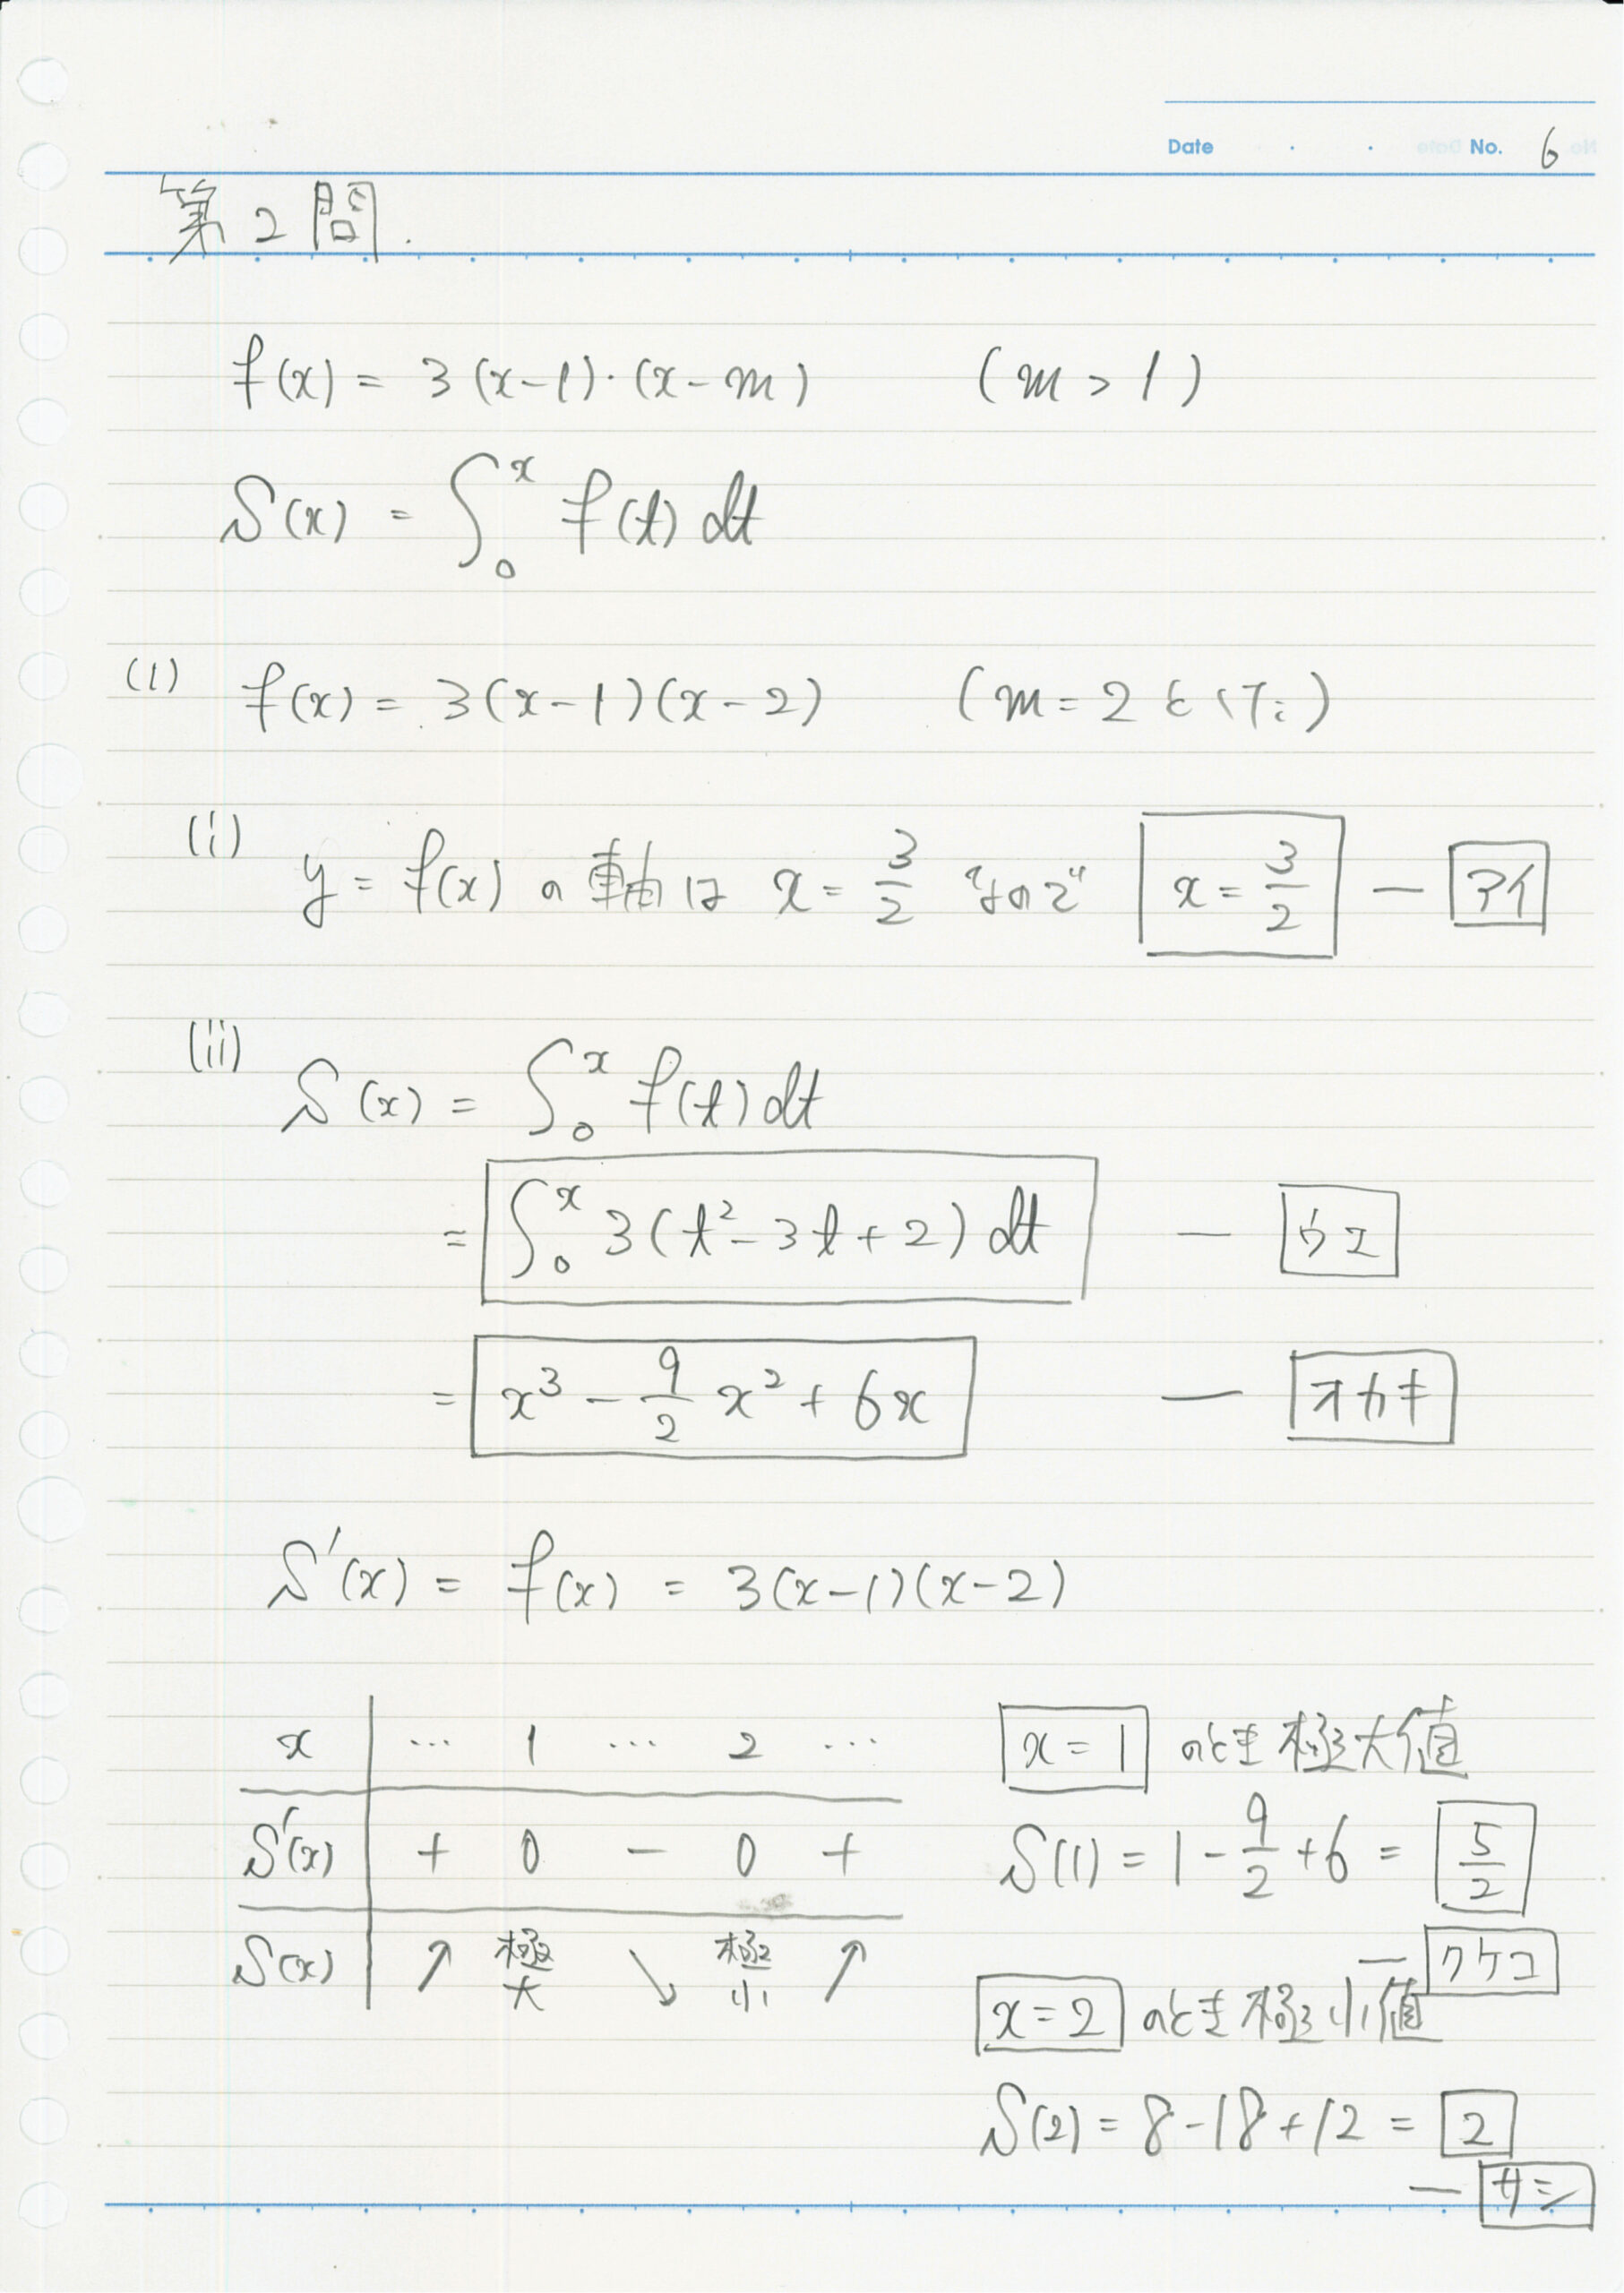 Date . . No. 6
第2問.
f(x) = 3(x-1)・(x-m) (m > 1)
S(x) = ∫₀ˣ f(t) dt
(1) f(x) = 3(x-1)(x-2) (m = 2 として)
(i) y = f(x) の軸は x = 3/2 なので x = 3/2 — アイ
(ii) S(x) = ∫₀ˣ f(t) dt
= ∫₀ˣ 3(t² - 3t + 2) dt — ウエ
= x³ - 9/2 x² + 6x — オカキ
S'(x) = f(x) = 3(x-1)(x-2)
x … 1 … 2 …
S'(x) + 0 - 0 +
S(x) ↗ 極大 ↘ 極小 ↗
x = 1 のとき極大値
S(1) = 1 - 9/2 + 6 = 5/2
— クケコ
x = 2 のとき極小値
S(2) = 8 - 18 + 12 = 2
— サシ